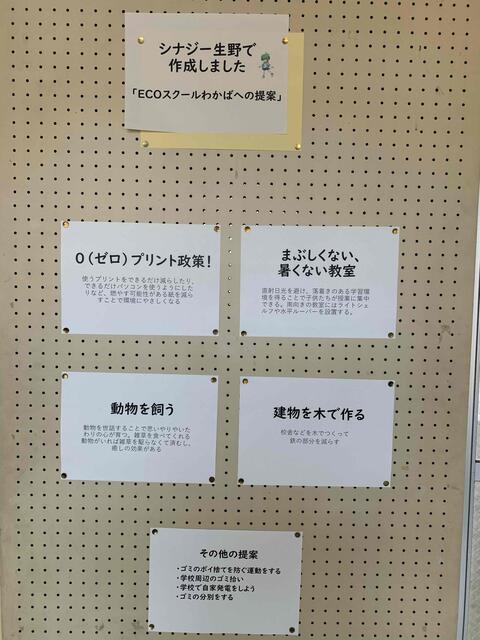 シナジー生野で
作成しました
「ECOスクールわかばへの提案」
0（ゼロ）プリント政策！
使うプリントをできるだけ減らしたり、
できるだけパソコンを使うようにした
りなど、燃やす可能性がある紙を減ら
すことで環境にやさしくなる
まぶしくない、
暑くない教室
直射日光を避け、落着きのある学習環
境を得ることで子供たちが授業に集中
できる。南向きの教室にはライトシェ
ルフや水平ルーバーを設置する。
動物を飼う
動物を世話することで思いやりやいた
わりの心が育つ。雑草を食べてくれる
動物がいれば雑草を駆らなくて済むし、
癒しの効果がある
建物を木で作る
校舎などを木でつくって
鉄の部分を減らす
その他の提案
・ゴミのポイ捨てを防ぐ運動をする
・学校周辺のゴミ拾い
・学校で自家発電をしよう
・ゴミの分別をする